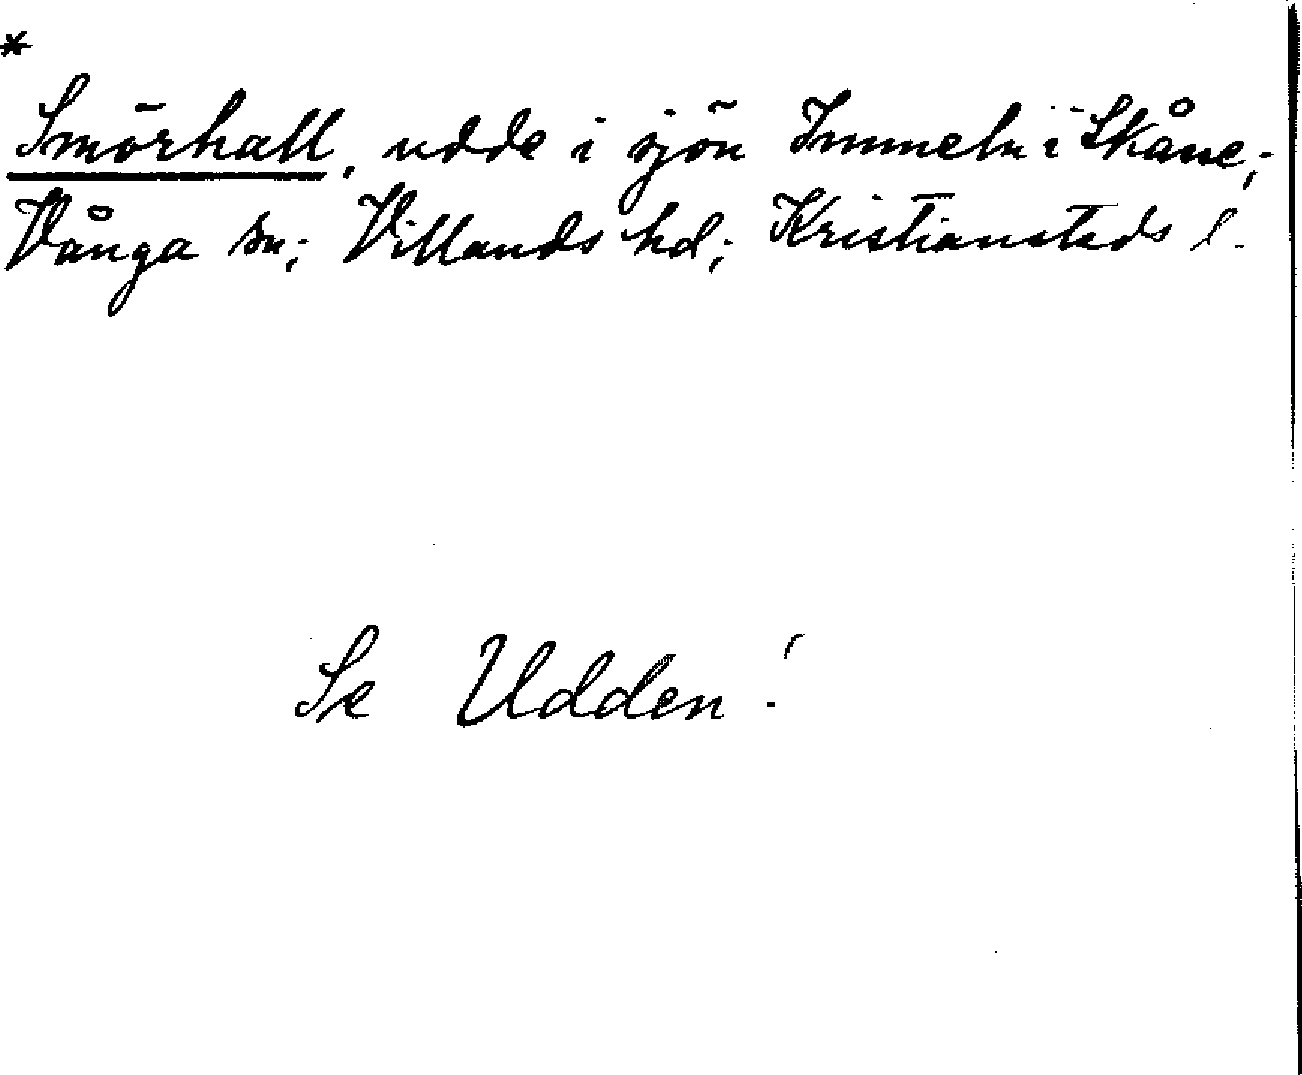 *
Smörhall, udde i sjön Immeln i Skåne;
Vånga sn; Villands hd; Kristianstads l.
Se Udden!